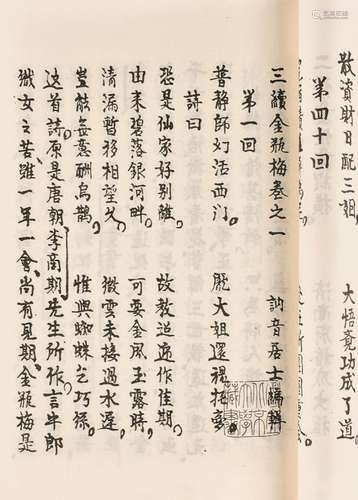 散資財日配三姐 大悟竟功成了道
第四十回
三續金瓶梅卷之一 訥音居士編輯
第一回
普静師幻活西门 龐大姐還魂托夢
詩曰
恐是仙家好别離 故教迢遞作佳期
由来碧落銀河畔 可要金風玉露時
清漏暫移相望久 微雲未接過水遲
豈能無意酬烏鵲 惟與蜘蛛乞巧絲
这首詩原是唐朝李商期先生所作言牛郎
織女之苦雖一年一會尚有見期金瓶梅是